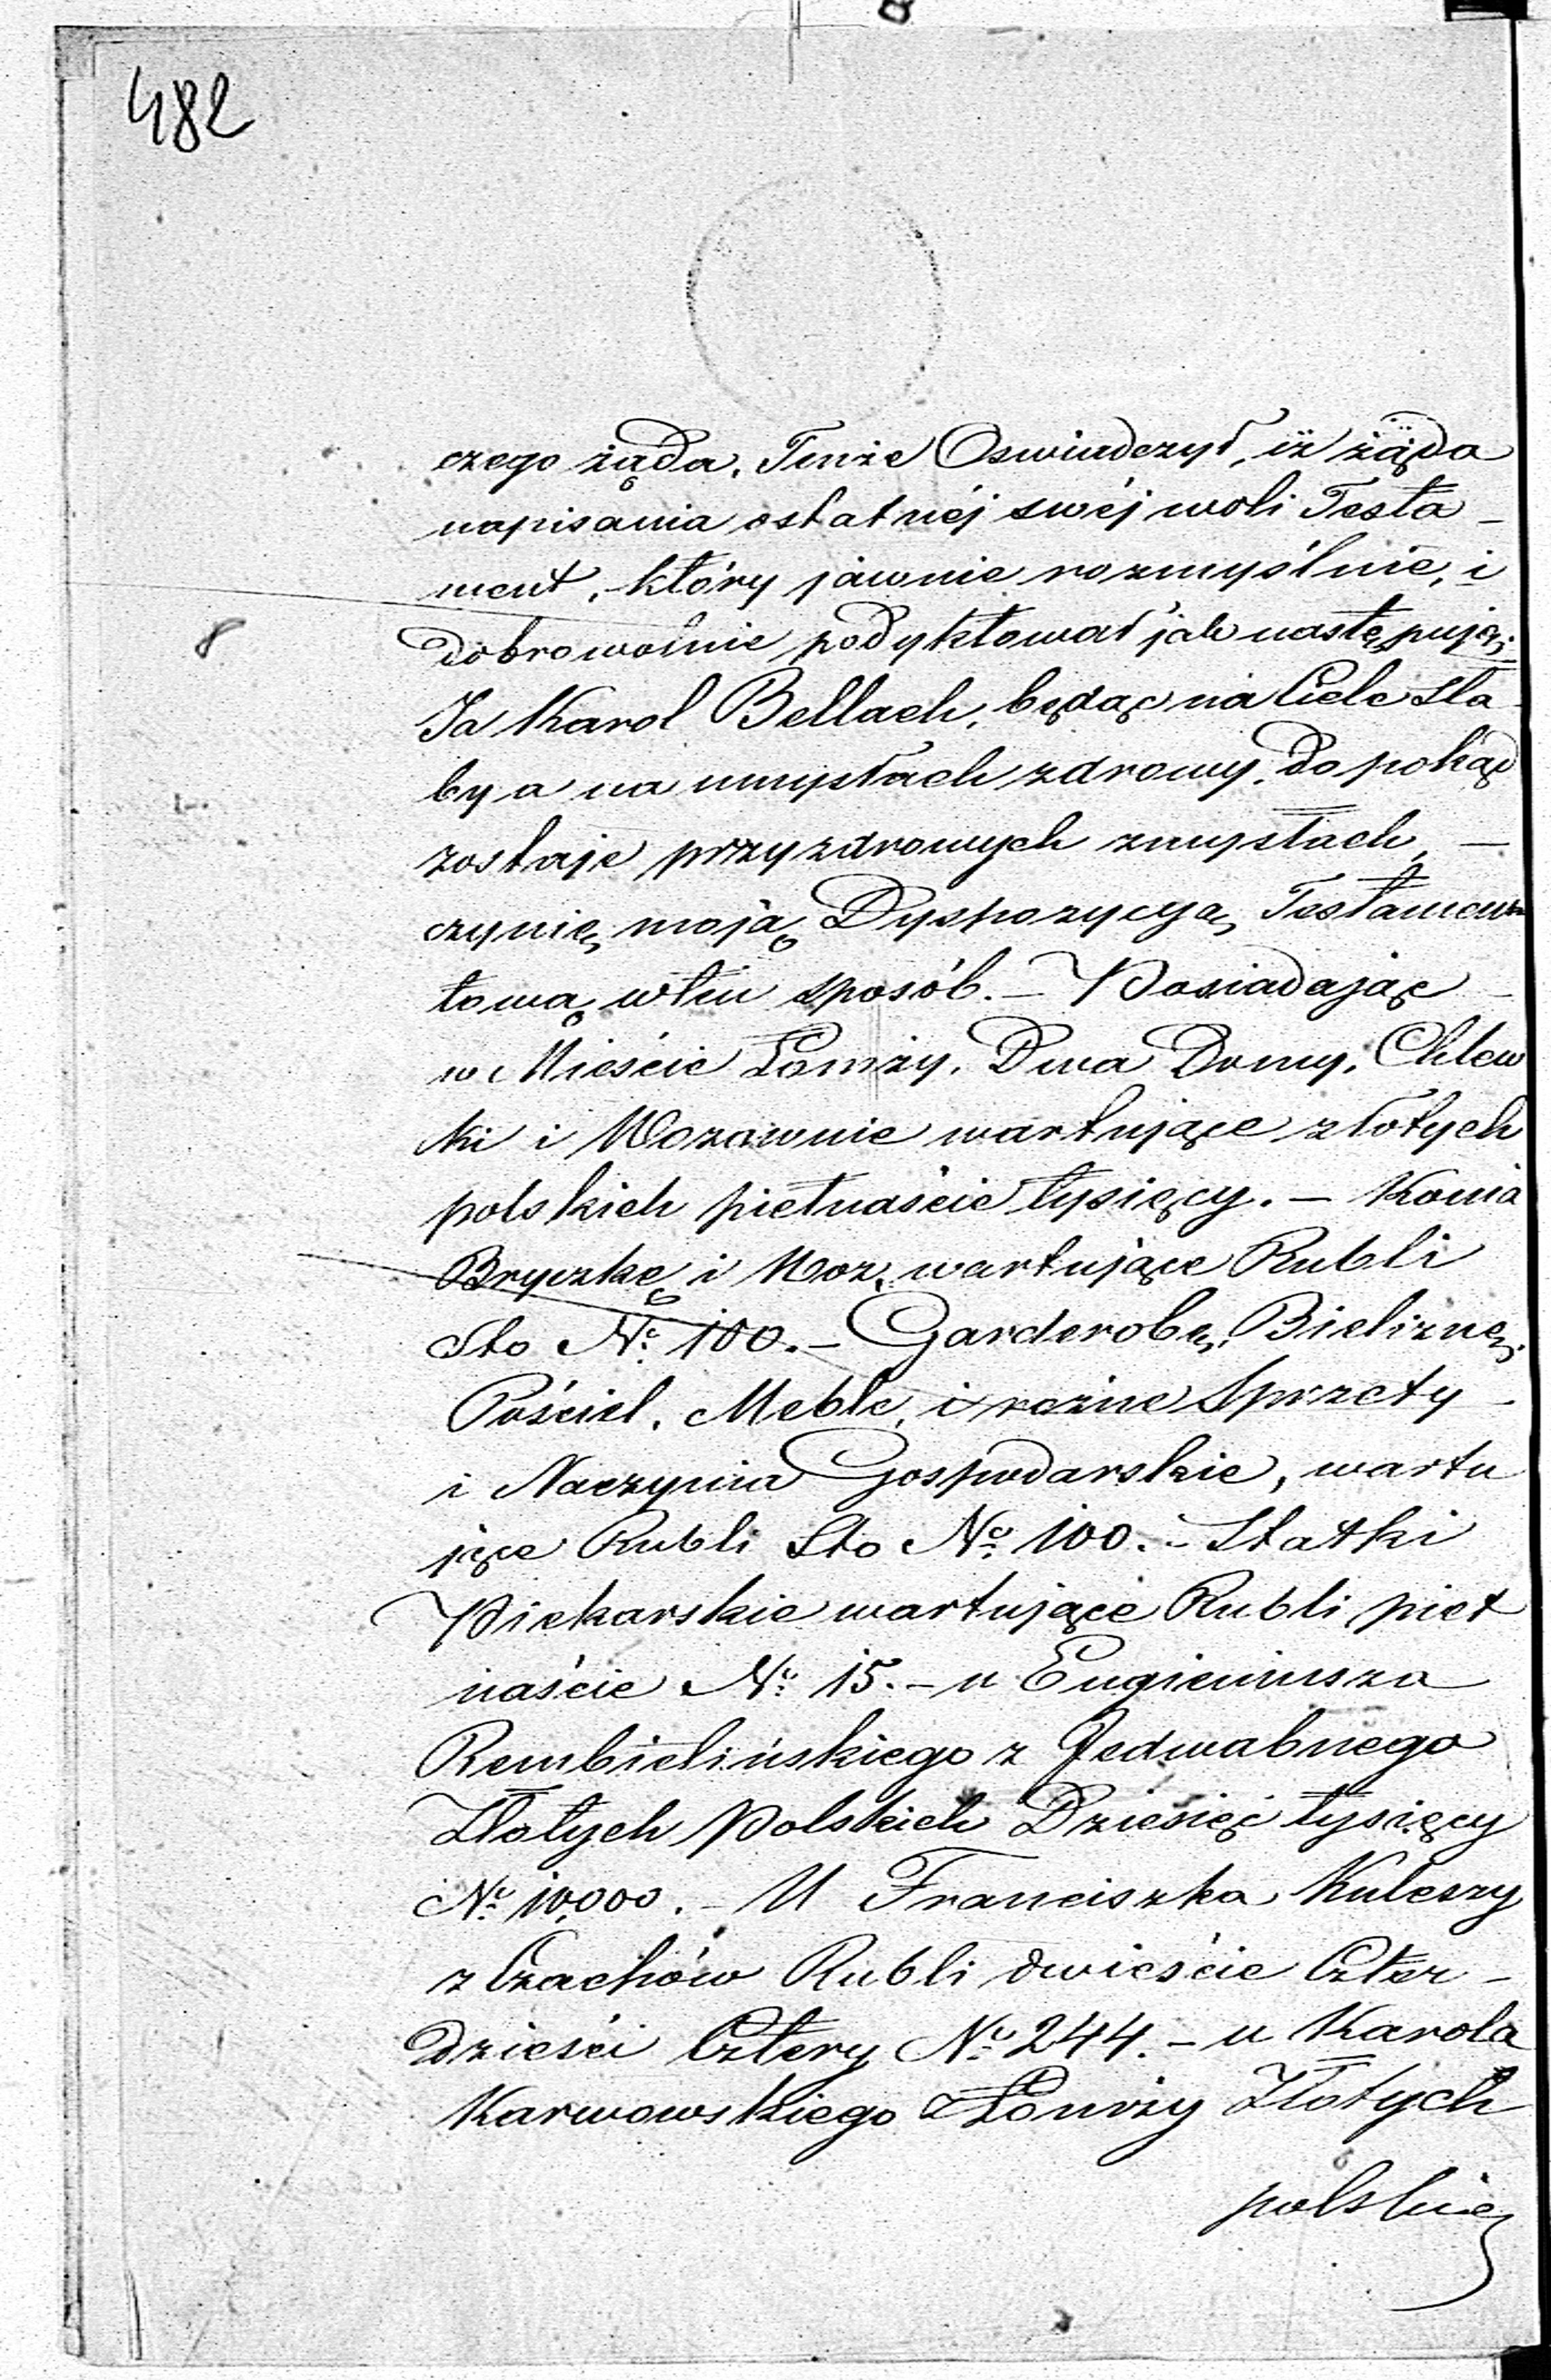 482
czego żąda. Tenże Oswiadczył, iż żąda
napisania ostatnéj swéj woli Testa-
ment, który jawnie rozmyślnie, i
dobrowolnie podyktował jak następuje;
8
Ja Karol Bellach, będąc na Ciele sła-
by a na umysłach zdrowy, do pokąd
zostaje przy zdrowych zmysłach, —
czynię, moją Dyspozycyą, Testamen
tową w ten sposób. — Posiadając —
w Mieście Łomży, Dwa Domy, Chlew
ki i Wozownie wartujące złotych
polskich pietnaście tysięcy. — Konia
Bryczkę i Woz, wartujące Rubli
Sto No 100. — Garderobę, Bieliznę,
Pościel, Meble, i rożne Sprzęty —
i Naczynia Gospodarskie, wartu
jące Rubli Sto No 100. — Statki
Piekarskie wartujące Rubli piet
naście No 15. — u Eugieniusza
Rembielińskiego z Jedwabnego
Złotych Polskich Dziesięć tysięcy
No 10,000. — U Franciszka Kuleszy
z Czachów Rubli dwieście Czter-
dzieści Cztery No 244. — u Karola
Karwowskiego z Łomży Złotych
polskich